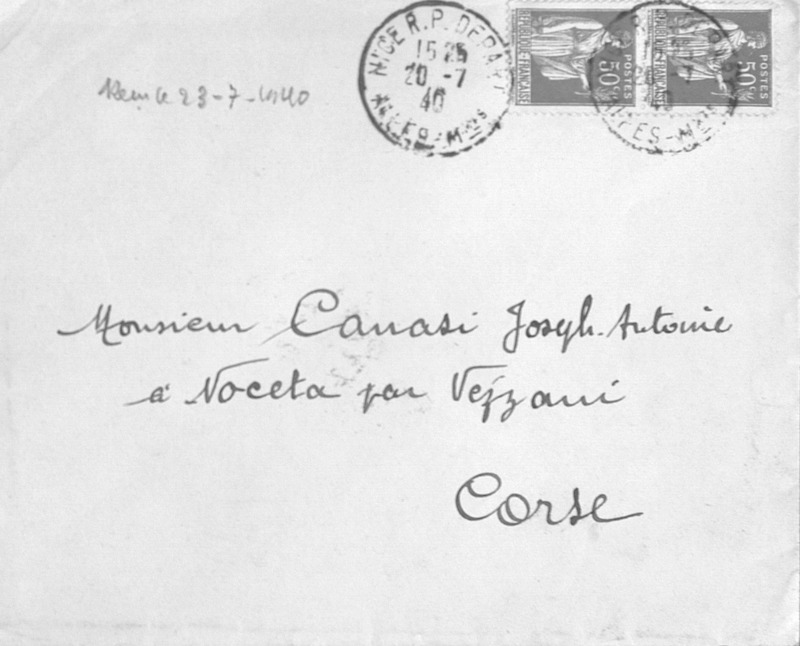 NICE R.P. DEPART
15 25
20 -7
40
ALPES-Mmes
RÉPUBLIQUE FRANÇAISE
50c
POSTES
RÉPUBLIQUE FRANÇAISE
50c
POSTES
le 23-7-1940
Monsieur Canasi Joseph-Antoine
à Noceta par Vezzani
Corse